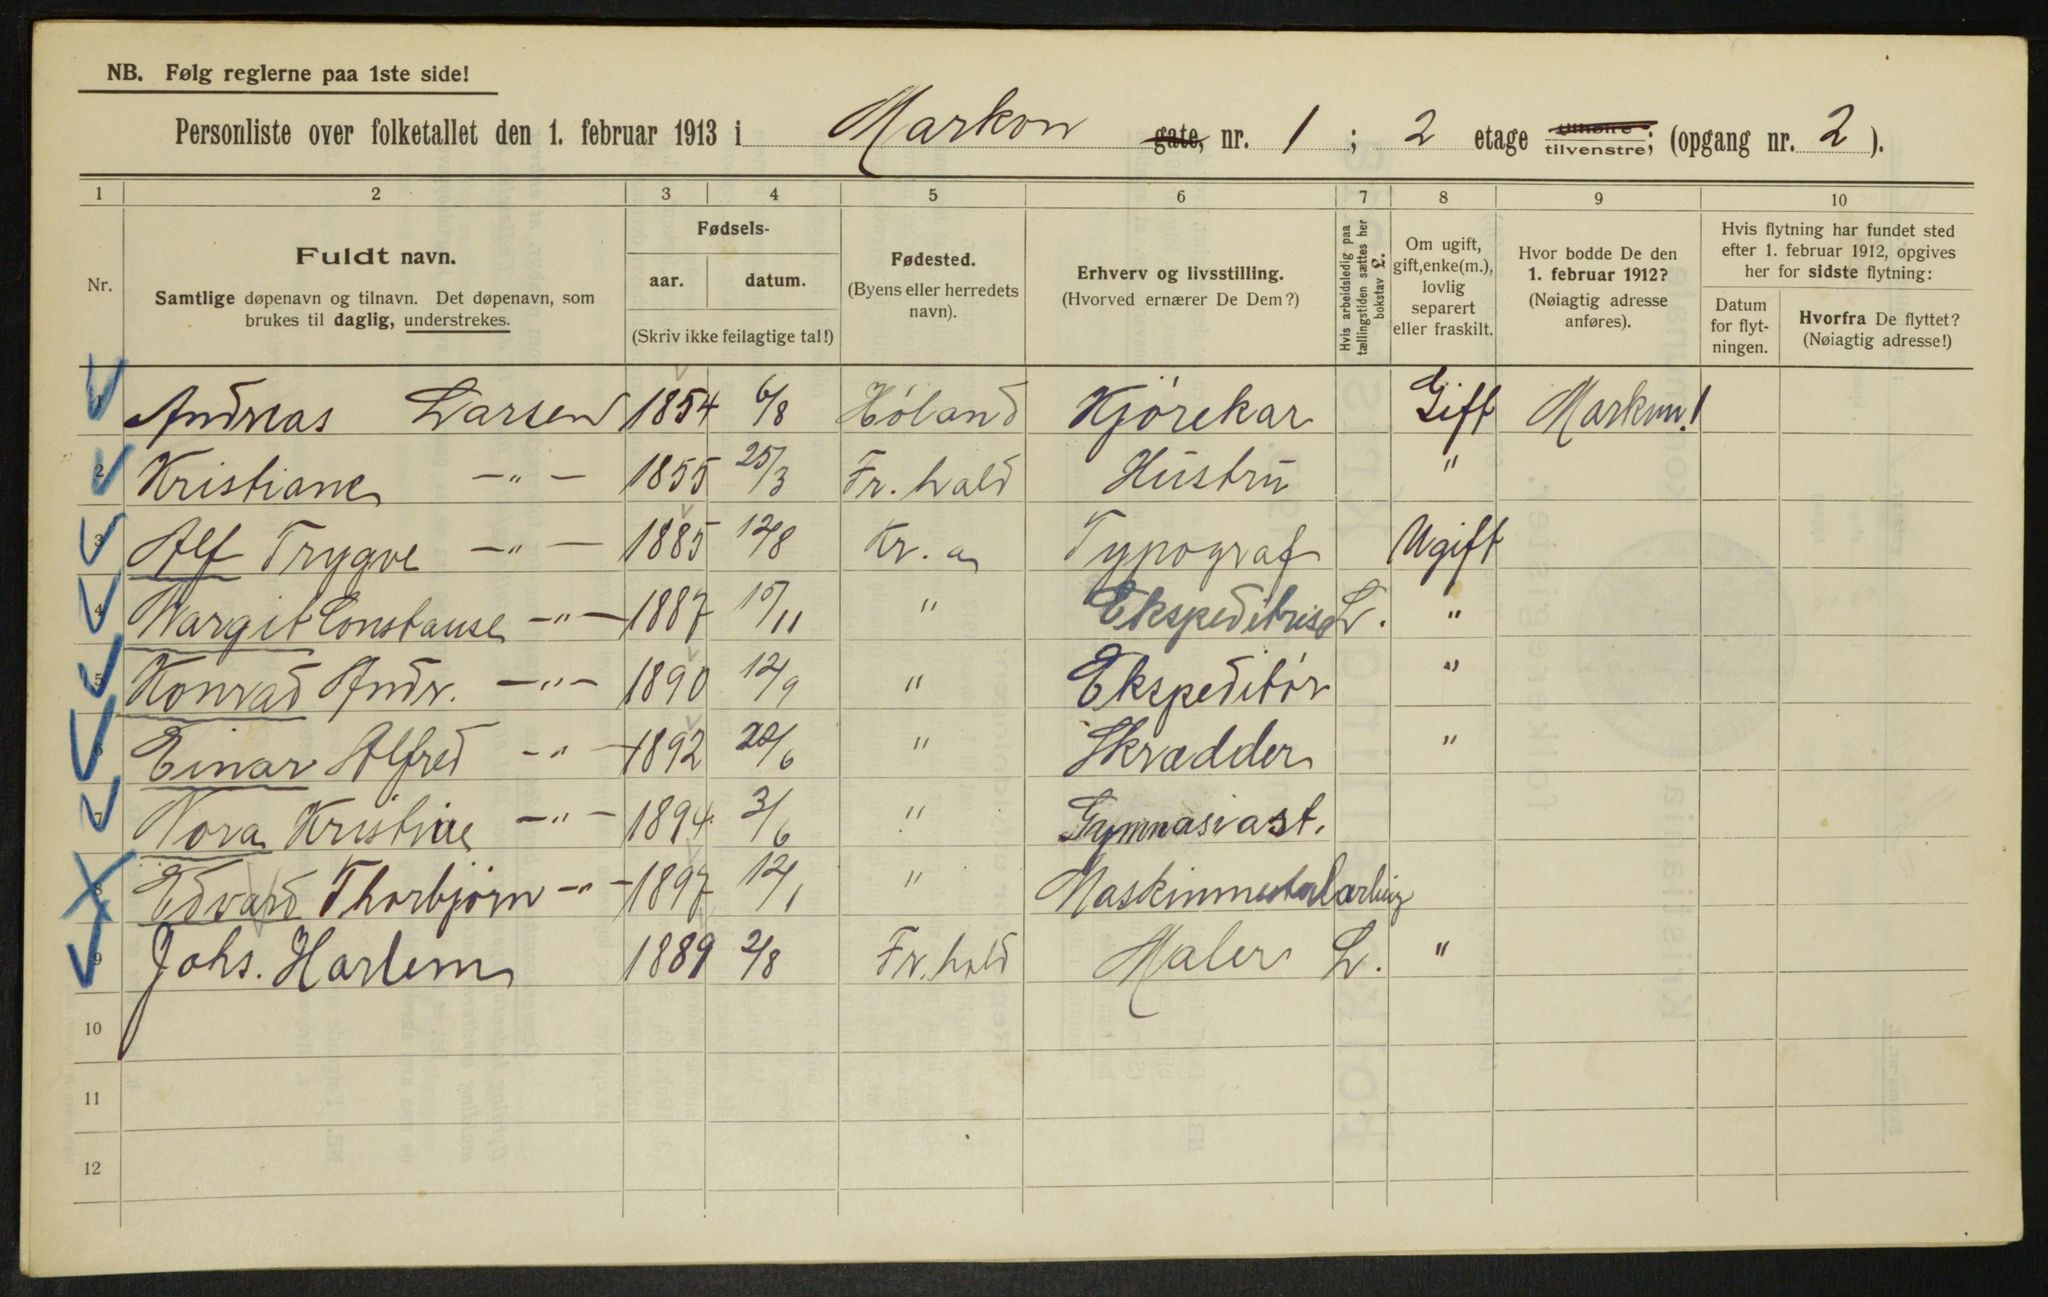 NB. Følg reglerne paa 1ste side!
Personliste over folketallet den 1. februar 1913 i Markvn gate, nr. 1 ; 2 etage tilhøire tilvenstre; (opgang nr. 2 ).
1 2 3 4 5 6 7 8 9 10
Nr.
Fuldt navn.
Samtlige døpenavn og tilnavn. Det døpenavn, som
brukes til daglig, understrekes.
Fødsels-
aar. datum.
(Skriv ikke feilagtige tal!)
Fødested.
(Byens eller herredets
navn).
Erhverv og livsstilling.
(Hvorved ernærer De Dem?)
Hvis arbeidsledig paa
tællingstiden sættes her
bokstav £.
Om ugift,
gift, enke(m.),
lovlig
separert
eller fraskilt.
Hvor bodde De den
1. februar 1912?
(Nøiagtig adresse
anføres).
Hvis flytning har fundet sted
efter 1. februar 1912, opgives
her for sidste flytning:
Datum
for flyt-
ningen.
Hvorfra De flyttet?
(Nøiagtig adresse!)
1 Andreas Larsen 1854 6/8 Høland Kjørekar Gift Markvn. 1
2 Kristiane -"- 1855 25/3 Fr.hald Hustru "
3 Alf Trygve -"- 1885 12/8 Kr.a Typograf Ugift
4 Margit Constanse -"- 1887 15/11 " Ekspeditrise L. "
5 Konrad Andr. -"- 1890 12/9 " Ekspeditør "
6 Einar Alfred -"- 1892 20/6 " Skrædder "
7 Nora Kristine -"- 1894 3/6 " Gymnasiast.
8 Edvard Thorbjørn -"- 1897 12/1 "
9 Johs. Harlem 1889 2/8 Fr.hald Maler L. "
10
11
12